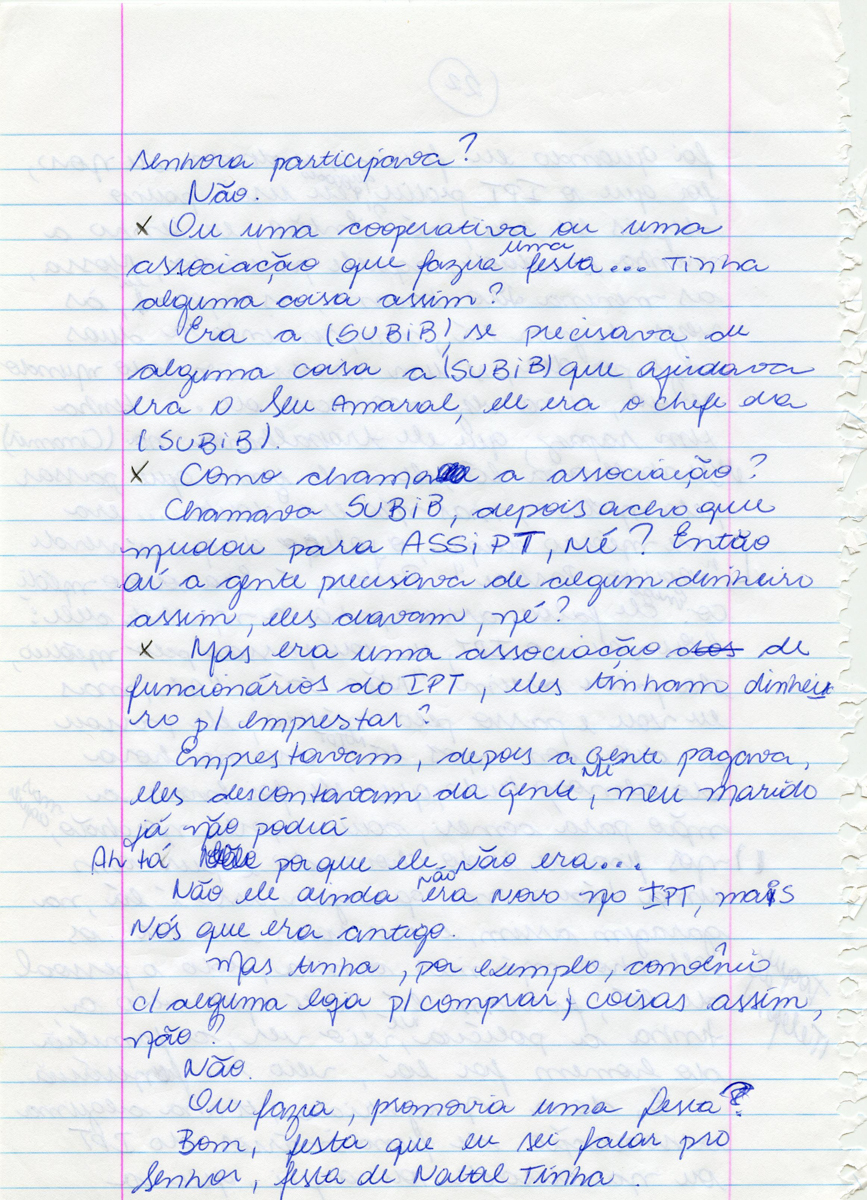 senhora participava?
Não.
x Ou uma cooperativa ou uma
associação que fazia uma festa... Tinha
alguma coisa assim?
Era a (SUBiB), se precisava de
alguma coisa a (SUBiB) que ajudava
era o Seu Amaral, ele era o chefe da
(SUBiB).
x Como chama a associação?
Chamava SUBiB, depois acho que
mudou para ASSiPT, né? Então
aí a gente precisava de algum dinheiro
assim, eles davam, né?
x Mas era uma associação dos de
funcionários do IPT, eles tinham dinhei
ro p/ emprestar?
Emprestavam, depois a gente pagava,
eles descontavam da gente, né, meu marido
já não podia
Ah, tá porque ele não era...
Não ele ainda não era novo no IPT, mais
nós que era antigo.
Mas tinha, por exemplo, convênio
c/ alguma loja p/ comprar coisas assim,
não?
Não.
Ou fazia, promovia uma festa?
Bom, festa que eu sei falar pro
Senhor, festa de Natal Tinha.